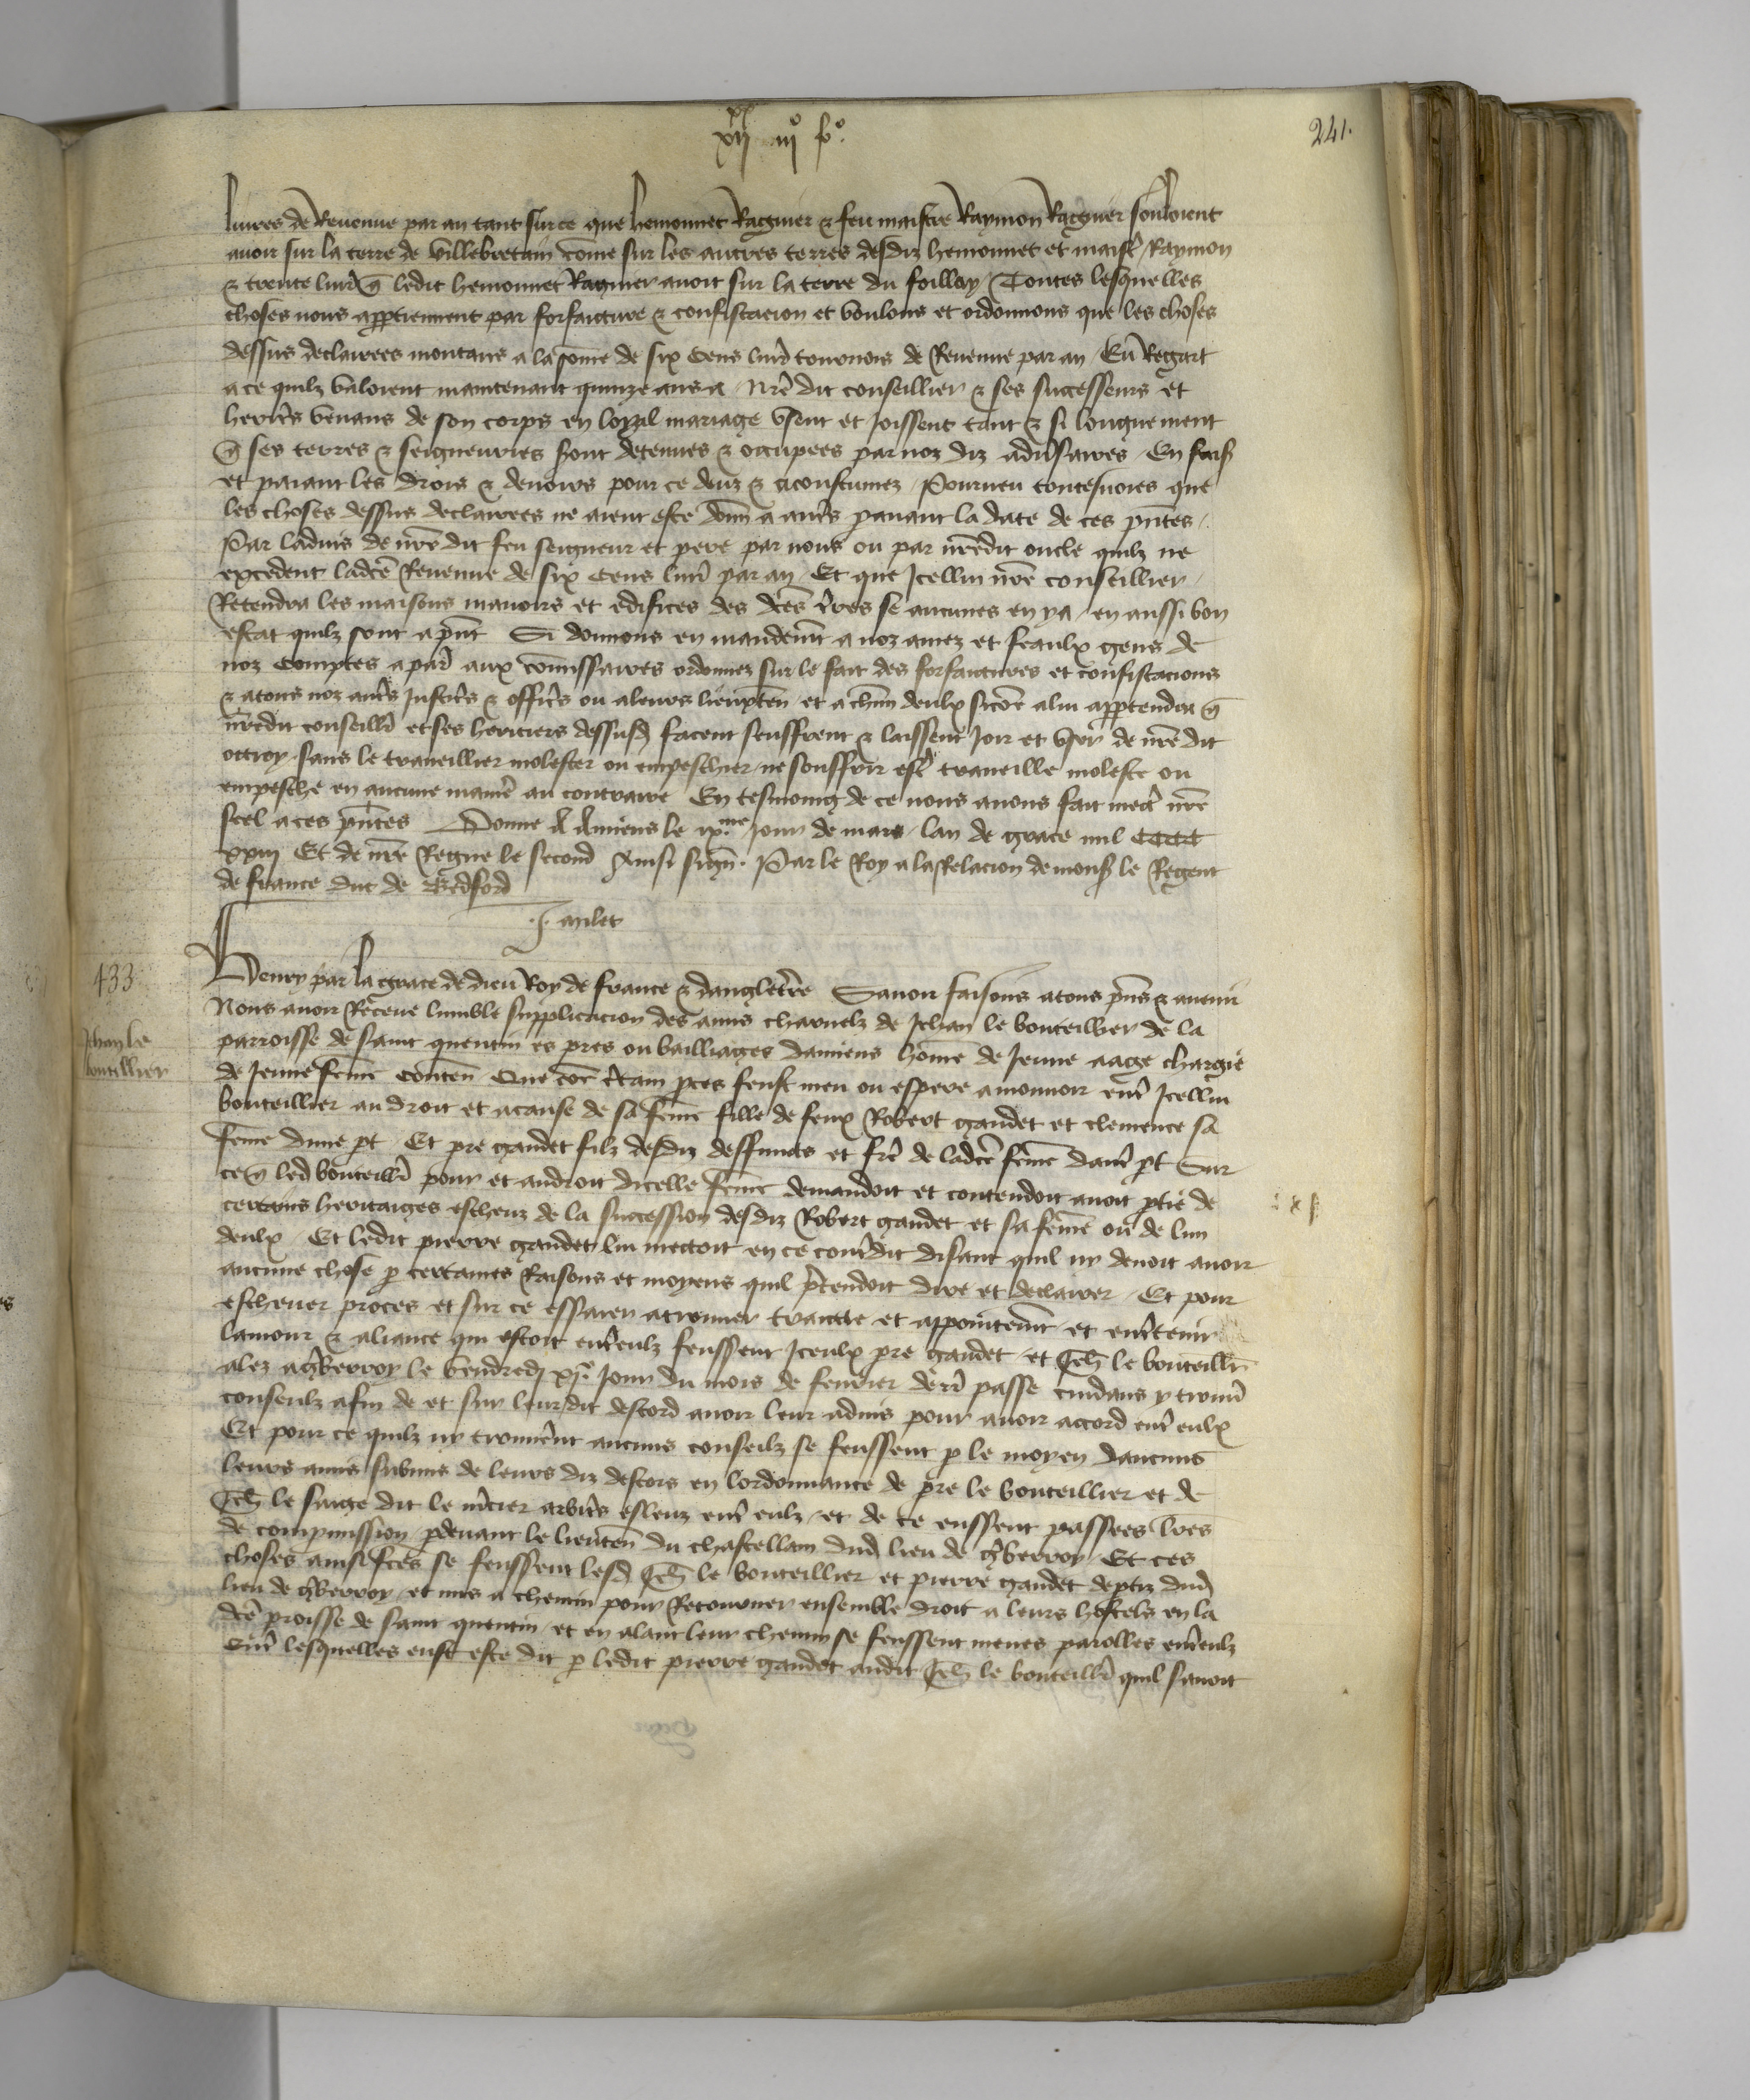 xii xx iij° f°.
241.
livres de Revenue par an tant sur ce que hemonnet Raguier & feu maistre Raymon Raguier souloient
avoir sur la terre de villebertain cōme sur les autres terres desdiz hemonnet et maistr̄ Raymon
& trente livr̄ q̄ ledit hemonnet Raguier avoit sur la terre du foillay / Toutes lesquelles
choses nous appartiennent par forfaiture & confiscacion et voulons et ordonnons que les choses
dessus declairees montans a la sōme de six cens livr̄ tournois de Revenue par an / Eu Regart
a ce quilz valoient maintenant quinze ans a / nr̄e dit conseillier & ses successeurs et
heritr̄s venans de son corps en loyal mariage usent et joissent tant & si longuement
q̄ ses terres & seigneuries sont detenues & occupees par noz diz adv̄saires / En fais̄
et paiant les drois & devoirs pour ce deuz & acoustumez / Pourveu toutesvoies que
les choses dessus declairees ne aient este donn̄ a autr̄s p̄avant la date de ces pn̄tes /.
Par ladvis de nr̄e dit feu seigneur et pere par nous ou par nr̄edit oncle quilz ne
excedent ladcē Revenue de six cens livr̄ par an / Et que Icellui nr̄e conseillier /
Retendra les maisons manoirs et edifices des dcēs tr̄res se aucunes en y a / en aussi bon
estat quilz sont a pn̄t Si donnons en mandem̄t a noz amez et feaulx gens de
noz comptes a par̄ aux cōmissaires ordonnez sur le fait des forfaitures et confiscacions
& a tous noz autr̄s justicr̄s & officr̄s ou a leurs lieuxten̄ et a chūn deulx sicōe a lui appartendra q̄
nr̄edit conseillr̄ et ses heritiers dessusd̄ facent seuffrent & laissent joir et user de nr̄e dit
octroy / sans le traveillier molester ou empeschier / ne souffrir estr̄ traveille moleste ou
empesche en aucune manier̄e au contraire En tesmoing de ce nous avons fait mectr̄ nr̄e
scel a ces pn̄tes Donne A Amiens le ix.me jour de mars / lan de grace mil CCCC
xxiij Et de nr̄e Regne le second Ainsi sign̄. Par le Roy a la Relacion de mons̄ le Regent
de france duc de Bedford
J. milet
433
Jehan le
boutillier
Henry par la grace de dieu Roy de france & dangleterr̄e Savoir faisons a tous pn̄s & avenir
Nous avoir Receue lumble supplicacion des amis charnelz de Jehan le bouteillier de la
parroisse de saint quentin es pres ou bailliages damiens hōme de Jeune aage chargie
de Jeune fēme conten̄ Que cōe certain p̄ces feust meu ou espere a mouvoir entr̄ Icellui
bouteillier au droit et a cause de sa fēme fille de feux Robert gaudet et clemence sa
fēme dune p̄t Et p̄re gaudet filz desdiz deffuncts et frer̄e de ladcē fēme dautr̄ p̄t Sur
ce q̄ led̄ bouteillr̄ pour et au droit dicelle fēme demandoit et contendoit avoir p̄tie de
certains heritaiges escheuz de la succession desdiz Robert gaudet et sa fēme ou de lun
deulx / Et ledit pierre gaudet lui mectoit en ce cont̄dit disant quil ny devoit avoir
aucune chose p̄ certaines Raisons et moyens quil p̄tendoit dire et declairer / Et pour
eschever proces et sur ce essaier a trouver traictie et appointem̄t et entr̄tenir
lamour & aliance qui estoit entr̄eulz feussent Iceulx p̄re gaudet / et Jeh̄ le bouteillr̄
alez a gb̄erroy le vendredj xj.e Jour du mois de fevrier dernr̄ passe cuidans y trouvr̄
conseulz afin de et sur leur dit descord avoir leur advis pour avoir accord entr̄ eulx
Et pour ce quilz ny trouver̄nt aucuns conseilz se feussent p̄ le moyen daucuns
leurs amis submis de leurs diz descors en lordonnance de p̄re le bouteillier et de
Jeh̄ le sauge dit le m̄cier arbitr̄s esleuz entr̄ eulz / et de ce eussent passees lr̄es
de compmission p̄devant le lieuten̄ du chastellain dud̄ lieu de gb̄erroy / Et ces
choses ainsi fcēs se feussent lesd̄ Jeh̄ le bouteillier et pierre gaudet deptiz dud̄
lieu de gb̄erroy / et mis a chemin pour Retourner ensemble droit a leurs hostels en la
dcē p̄roisse de saint quentin / et en alant leur chemin se feussent meues parolles entr̄eulz
Entr̄ lesquelles eust este dit p̄ ledit pierre gaudet audit Jeh̄ le bouteillr̄ quil savoit